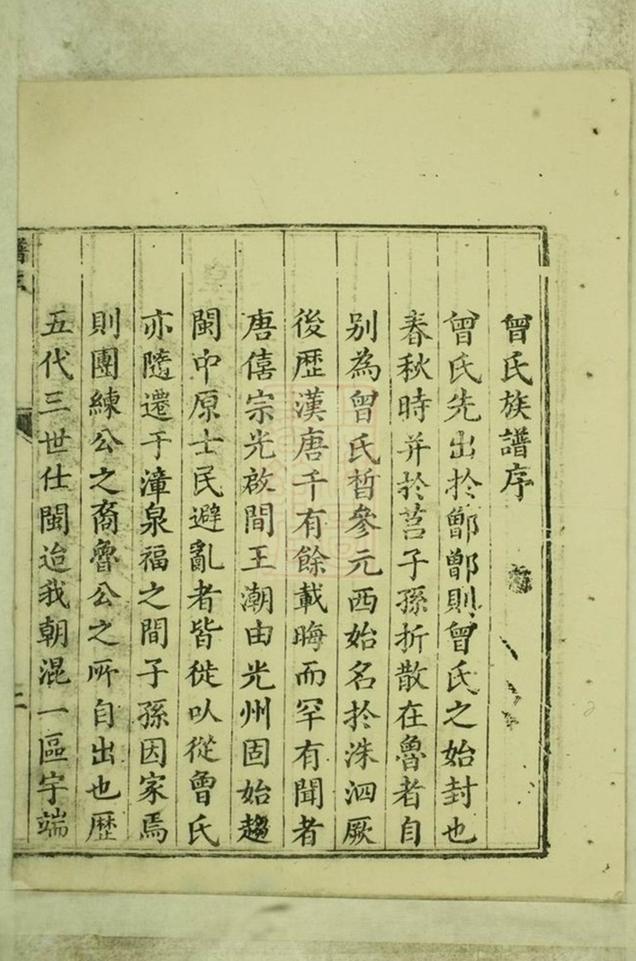 曾氏族譜序
曾氏先出於鄫鄫則曾氏之始封也
春秋時并於莒子孫折散在魯者自
别為曾氏晳參元西始名於洙泗厥
後歷漢唐千有餘載晦而罕有聞者
唐僖宗光啟間王潮由光州固始趨
閩中原士民避亂者皆徙以從曾氏
亦隨遷于漳泉福之間子孫因家焉
則團練公之裔魯公之所自出也歷
五代三世仕閩迨我朝混一區宇端